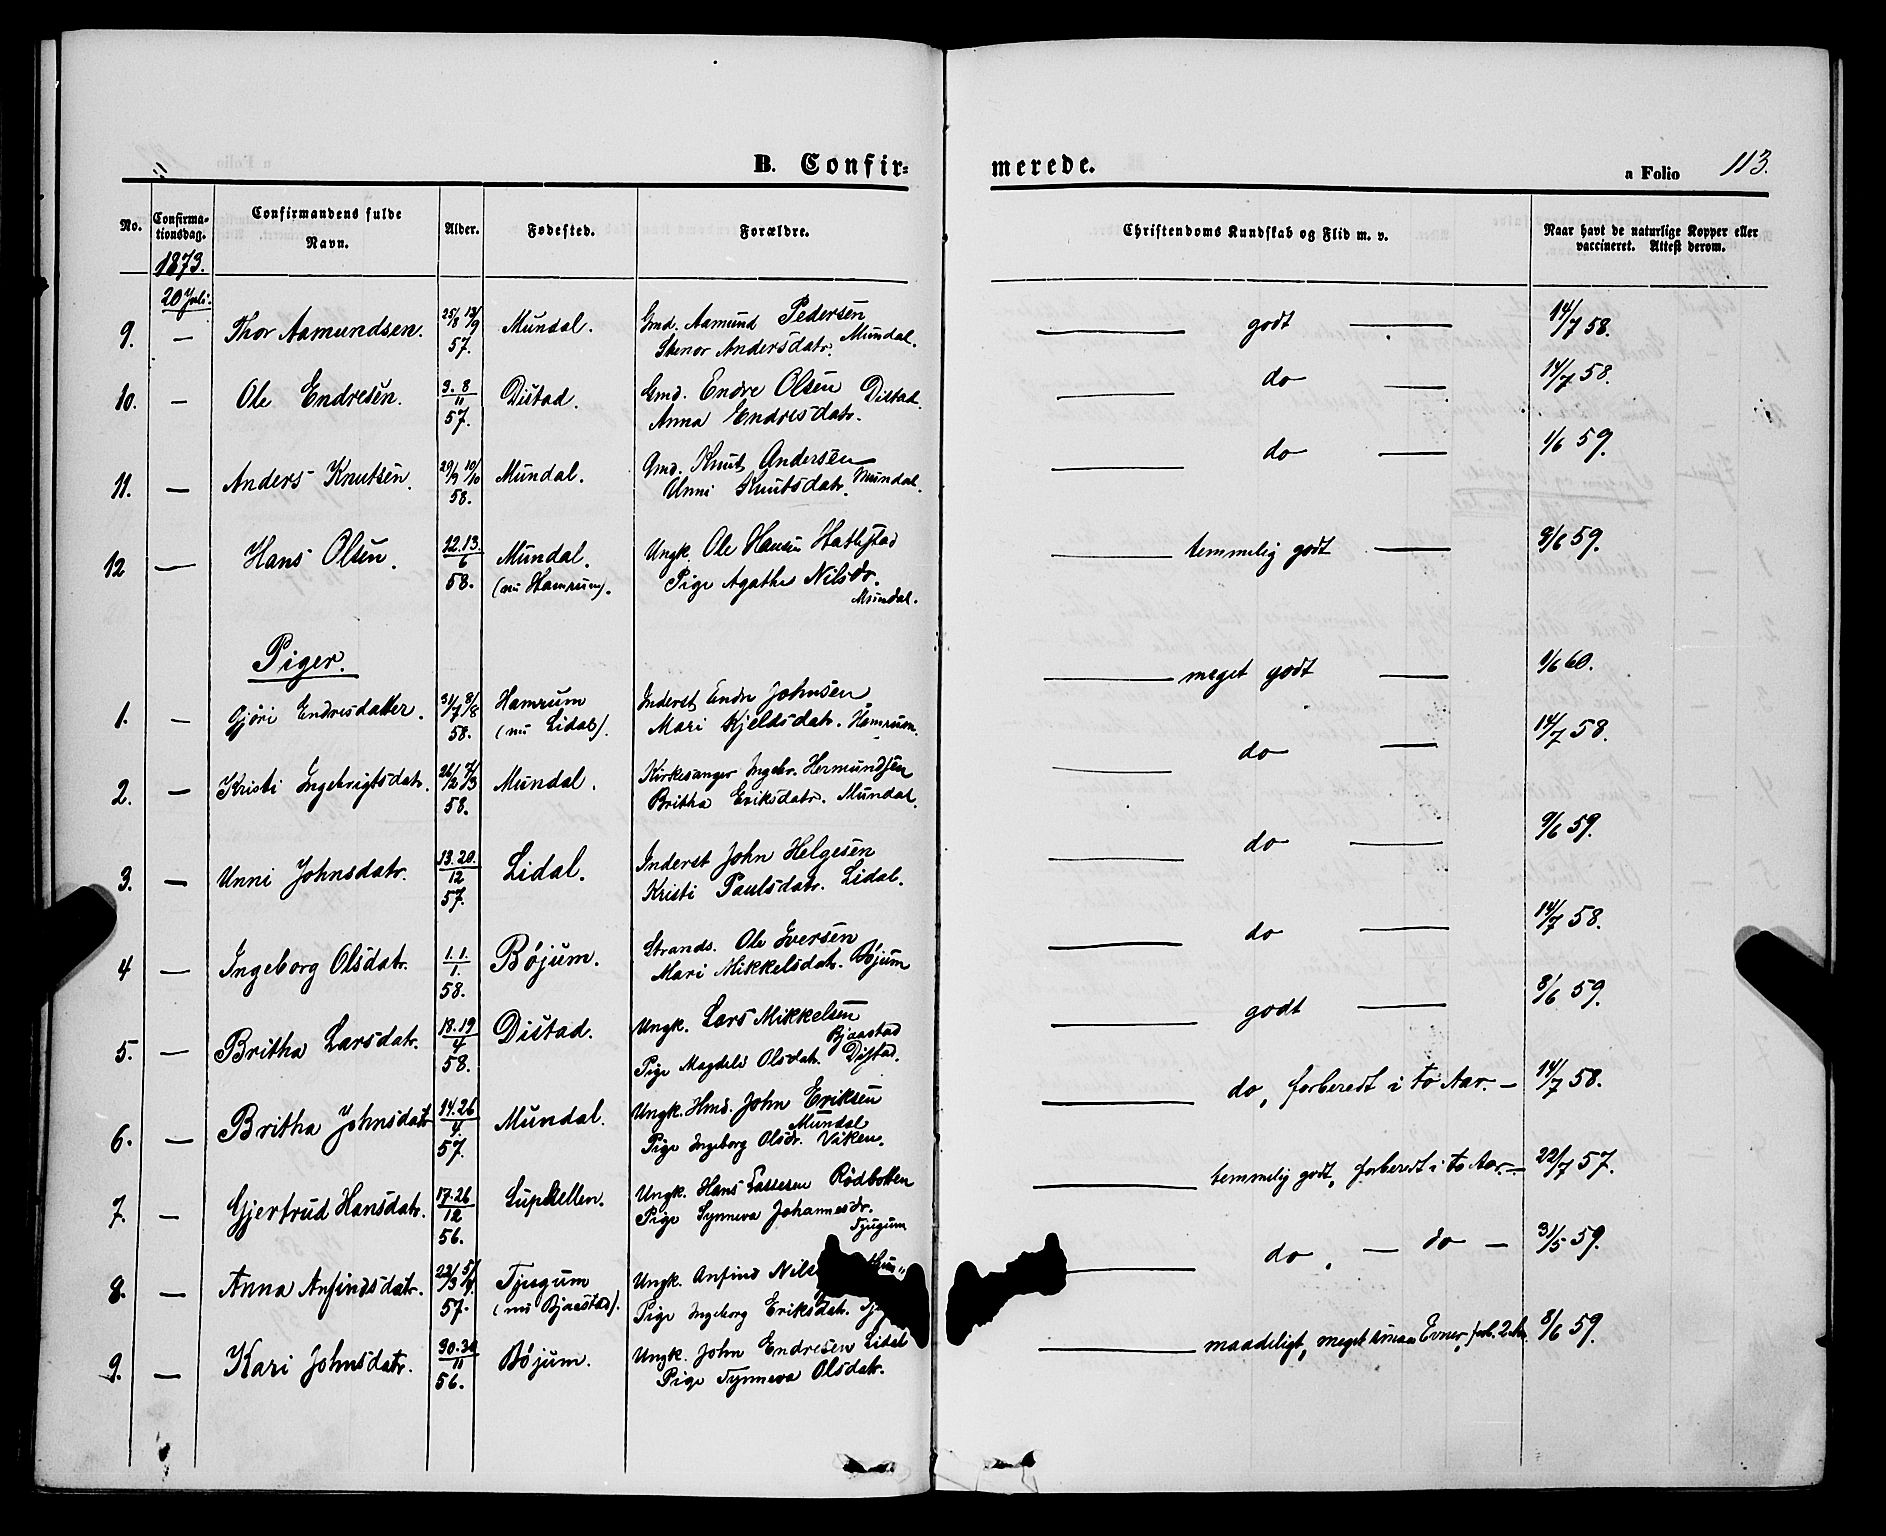 B. Confir=
merede.
a Folio 113.
No.
Confirma-
tionsdag.
Confirmandens fulde
Navn.
Alder.
Fødested.
Forældre.
Christendoms Kundskab og Flid m. v.
Naar havt de naturlige Kopper eller
vaccineret. Attest derom.
1873.
20 Juli.
9. — Thor Aamundsen. 25/8 13/9 57. Mundal. Gmd. Aamund Pedersen
Andersdatr. Mundal. — godt — 14/7 58.
10. — Ole Endresen. 3. 8/11 57. Distad. Gmd. Endre Olsen
Anna Endresdatr. Distad. — do — 14/7 58.
11. — Anders Knutsen. 29/9 10/10 58. Mundal. Gmd. Knut Andersen
Unni Knutsdatr. Mundal. — do — 1/6 59.
12 — Hans Olsen. 12. 13./6 58. Mundal. (nu Hamrum). Ungk. Ole Hansen
Pige Agathe Nilsdr.
Mundal. — temmelig godt — 9/6 59.
Piger.
1. — Gjøri Endresdatter. 31/7 8/8 58. Hamrum (nu Lidal). Inderst Endre Johnsen
Mari Kjeldsdatr. Hamrum. — meget godt — 1/6 60.
2. — Kristi Ingebrigtsdatr. 26/2 7/3 58. Mundal. Kirkesanger Ingebr. Hermundsen
Britha Eriksdatr. Mundal. — do — 14/7 58.
3. — Unni Johnsdatr. 13. 20./12 57. Lidal. Inderst John Helgesen
Kristi Paulsdatr. Lidal. — do — 9/6 59.
4 — Ingeborg Olsdatr. 1. 1./1. 58. Bøjum. Strands. Ole Iversen
Mari Mikkelsdatr. Bøjum — do — 14/7 58.
5. — Britha Larsdatr. 18. 19/4 58. Distad. Ungk. Lars Mikkelsen
Bjaastad
Pige Magdeli Olsdatr. Distad. — godt — 8/6 59.
6. — Britha Johnsdatr 14. 26/4. 57. Mundal. Ungk. Hmd. John Eriksen
Mundal
Pige Ingeborg Olsdr. Viken. — do, forberedt i to Aar. — 14/7 58.
7. — Gjertrud Hansdatr. 17. 26/12 56. Ungk. Hans Lassesen Rødbotten
Pige Synneva Johannesdr.
Tjugum — temmelig godt, forberedt i to Aar. — 22/7 57.
8. — Anna Anfindsdatr. 22/3 5/4 57. Tjugum (nu Bjaastad). Ungk. Anfind
Pige Ingeborg Eriksdatr. — do, — do — 31/5 59.
9. — Kari Johnsdatr. 30. 30/11 56. Bøjum. Ungk. John Endresen Lidal
Pige Synneva Olsdatr. — maadeligt, meget smaa Evner, 8/6 59.